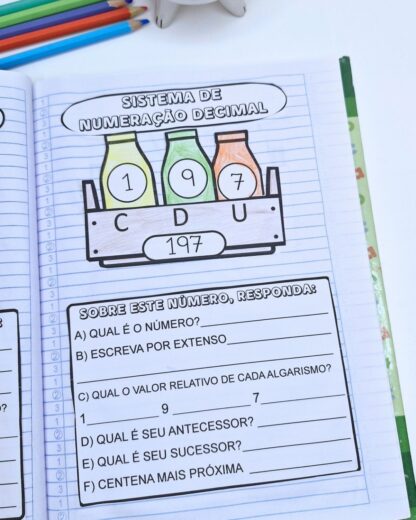 SISTEMA DE
NUMERAÇÃO DECIMAL
1 9 7
C D U
197
SOBRE ESTE NÚMERO, RESPONDA:
A) QUAL É O NÚMERO?
B) ESCREVA POR EXTENSO
C) QUAL O VALOR RELATIVO DE CADA ALGARISMO?
1 9 7
D) QUAL É SEU ANTECESSOR?
E) QUAL É SEU SUCESSOR?
F) CENTENA MAIS PRÓXIMA